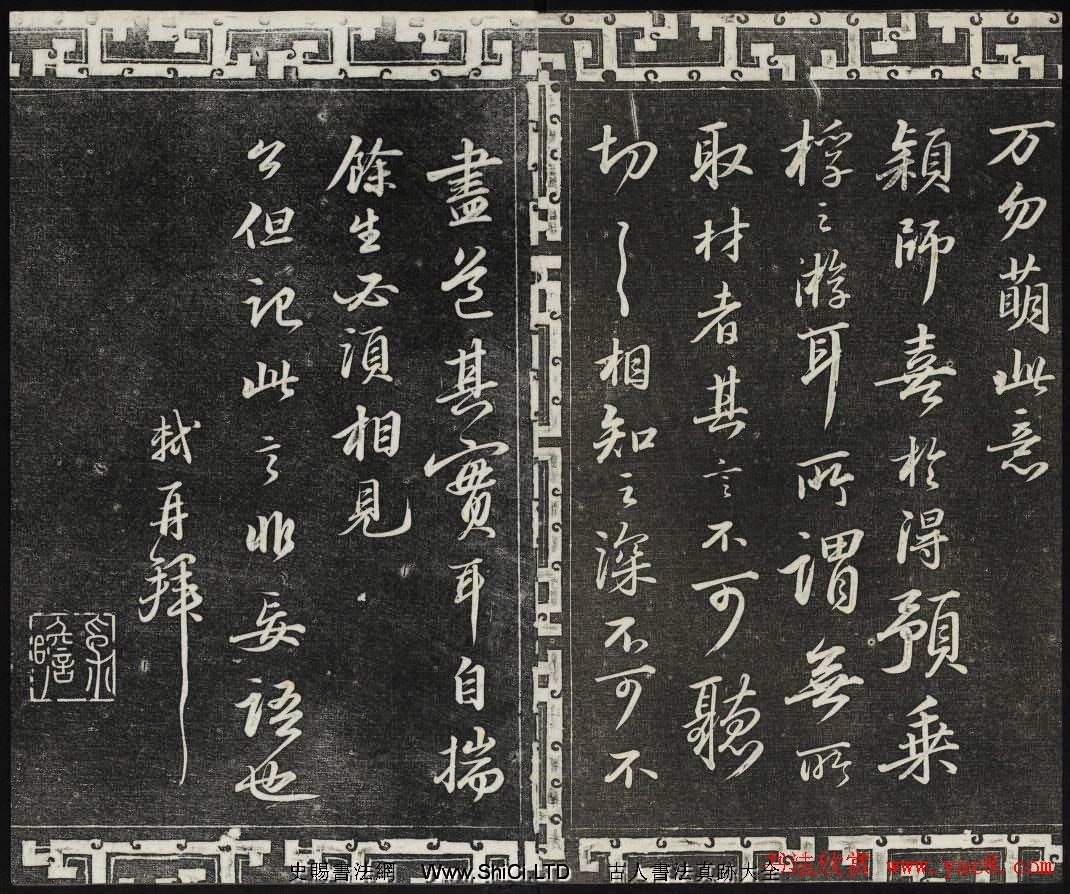 万勿萌此意
颖師喜於得預乗
桴之游耳所謂無所
取材者其言不可聽
切切相知之深不可不
盡道其實耳自揣
餘生必須相見
公但記此言非妄語也
軾再拜
史賜書法網 WWW.ShiCi.LTD 古人書法真跡大全
书法欣赏 www.yac8.com